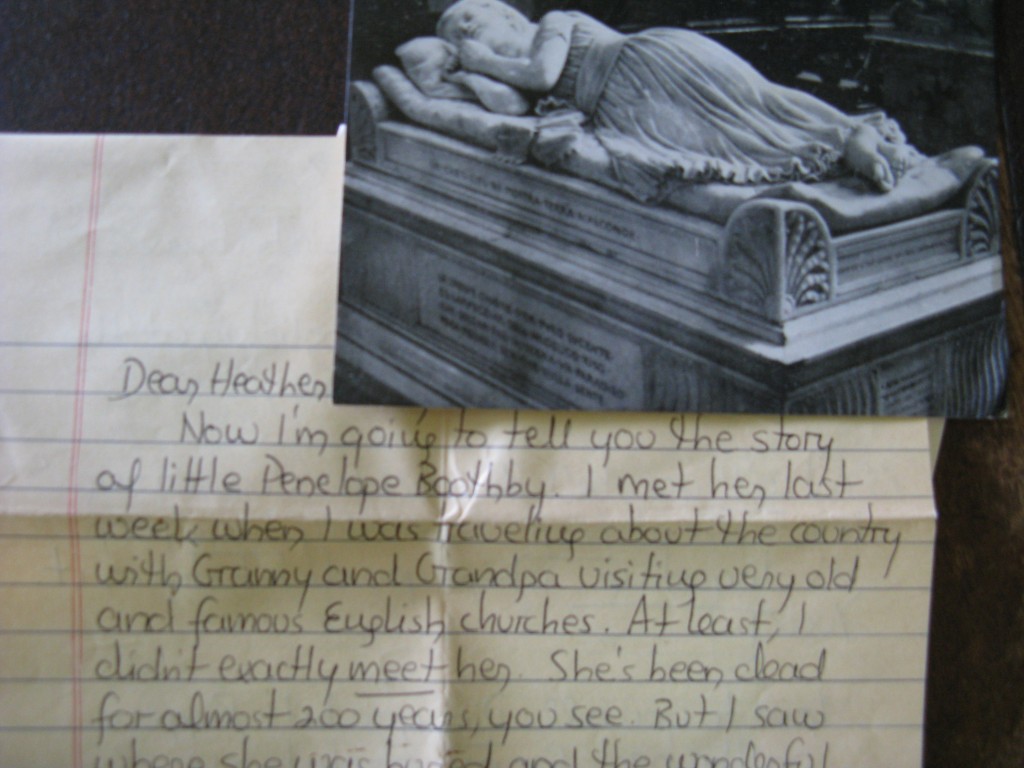 Dear Heather,
Now I'm going to tell you the story
of little Penelope Boothby. I met her last
week when I was traveling about the country
with Granny and Grandpa visiting very old
and famous English churches. At least, I
didn't exactly meet her. She's been dead
for almost 200 years, you see. But I saw
where she was buried and the wonderful